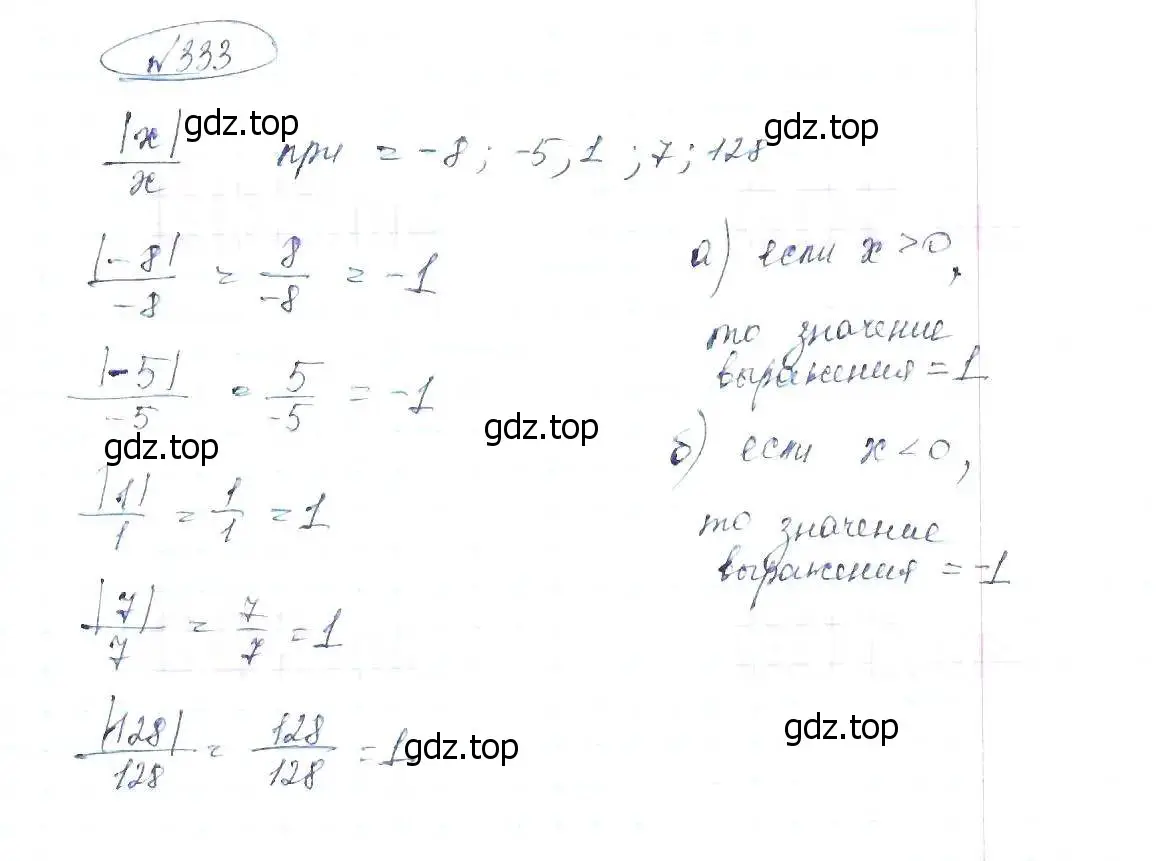 №333
|x|/x при = -8; -5, 1; 7; 128
|-8|/-8 = 8/-8 = -1
|-5|/-5 = 5/-5 = -1
|1|/1 = 1/1 = 1
|7|/7 = 7/7 = 1
|128|/128 = 128/128 = 1
а) если x > 0,
то значение
выражения = 1
б) если x < 0,
то значение
выражения = -1
gdz.top
gdz.top
gdz.top
gdz.top
gdz.top
gdz.top